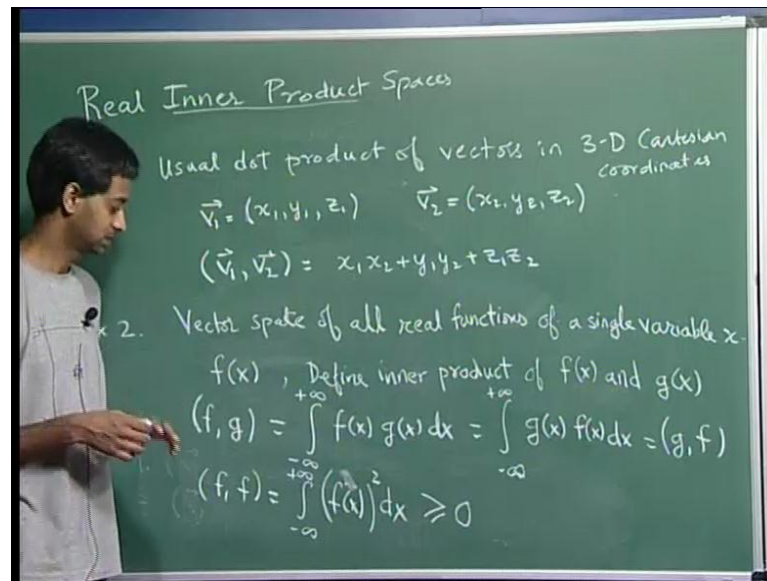 Real Inner Product Spaces
Usual dot product of vectors in 3-D Cartesian
coordinates
v⃗₁ = (x₁, y₁, z₁)   v⃗₂ = (x₂, y₂, z₂)
(v⃗₁, v⃗₂) = x₁x₂ + y₁y₂ + z₁z₂
x 2. Vector space of all real functions of a single variable x.
f(x) , Define inner product of f(x) and g(x)
(f, g) = ∫_{-∞}^{+∞} f(x) g(x) dx = ∫_{-∞}^{+∞} g(x) f(x) dx = (g, f)
(f, f) = ∫_{-∞}^{+∞} (f(x))² dx ≥ 0